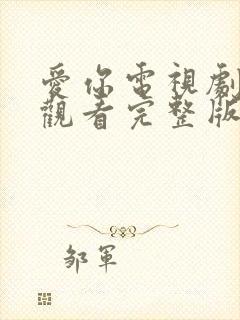 愛你電視劇
觀看完整版
鄒軍